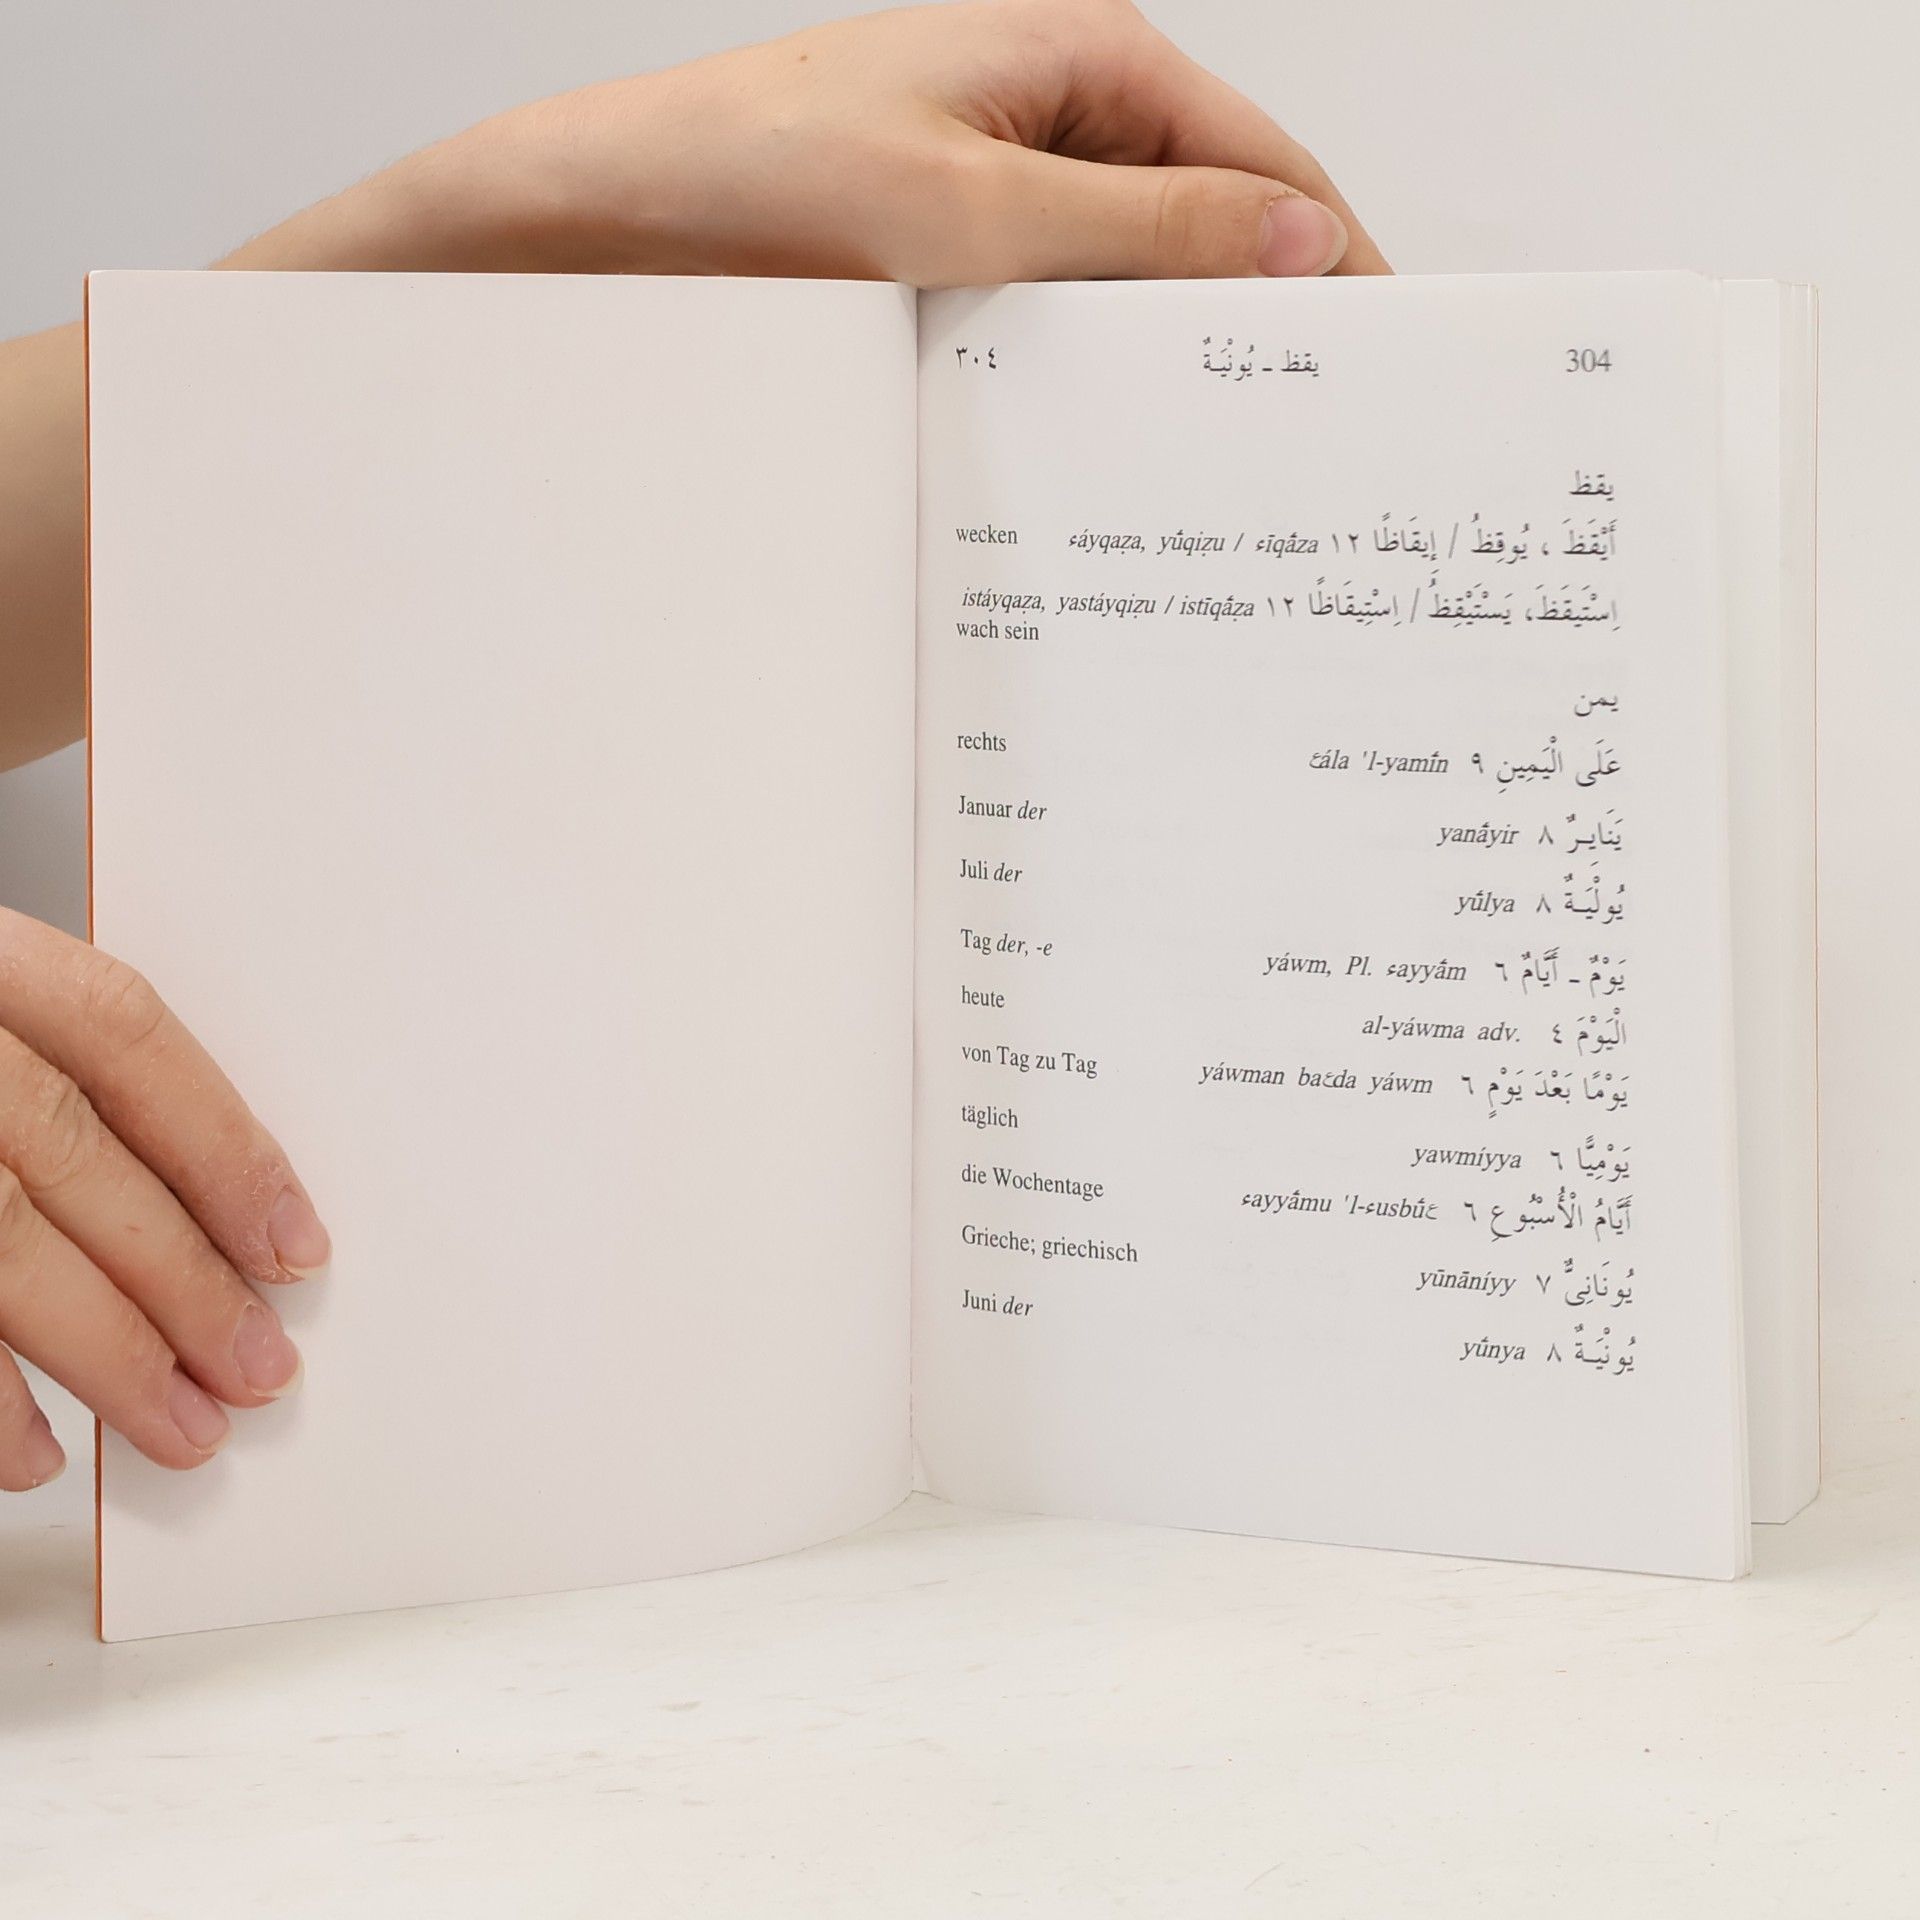 ٣٠٤ يقظ ـ يُونْيَـةٌ 304
يقظ
wecken ءáyqaẓa, yū́qiẓu / ءīqā́za ١٢ أَيْقَظَ ، يُوقِظُ / إِيقَاظًا
istáyqaẓa, yastáyqiẓu / istīqā́ẓa ١٢ اِسْتَيقَظَ، يَسْتَيْقِظُ / اِسْتِيقَاظًا
wach sein
يمن
rechts عála 'l-yamī́n ٩ عَلَى الْيَمِينِ
Januar der yanā́yir ٨ يَنَايِـرٌ
Juli der yū́lya ٨ يُولْيَـةٌ
Tag der, -e yáwm, Pl. ءayyā́m ٦ يَوْمٌ ـ أَيَّامٌ
heute al-yáwma adv. ٤ الْيَوْمَ
von Tag zu Tag yáwman baعda yáwm ٦ يَوْمًا بَعْدَ يَوْمٍ
täglich yawmíyya ٦ يَوْمِيًّا
die Wochentage ءayyā́mu 'l-ءusbū́ع ٦ أَيَّامُ الْأُسْبُوعِ
Grieche; griechisch yūnāníyy ٧ يُونَانِىٌّ
Juni der yū́nya ٨ يُونْيَـةٌ